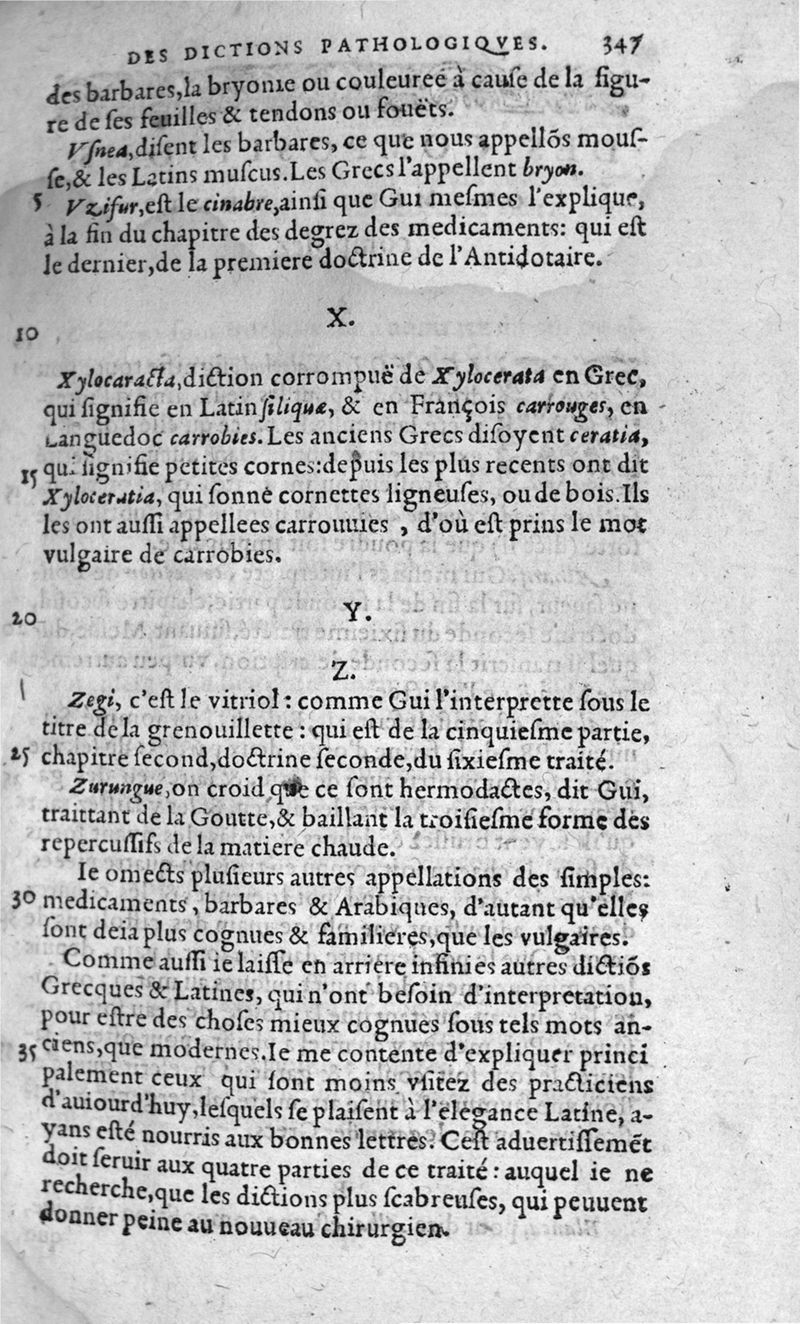 DES DICTIONS PATHOLOGIQVES. 347
des barbares,la bryonie ou couleureé à cauſe de la figu-
re de ſes feuilles & tendons ou fouëts.
Vſnea,diſent les barbares, ce que nous appellõs mouſ-
ſe,& les Latins muſcus.Les Grecs l'appellent bryon.
5 Vzifur,eſt le cinabre,ainſi que Gui meſmes l'explique,
à la fin du chapitre des degrez des medicaments: qui eſt
le dernier,de la premiere doctrine de l'Antidotaire.
X.
10
Xylocaracta,diction corrompuë de Xylocerata en Grec,
qui ſignifie en Latin ſiliquæ, & en François carrouges, en
Languedoc carrobies.Les anciens Grecs diſoyent ceratia,
15 qui ſignifie petites cornes:depuis les plus recents ont dit
Xyloceratia, qui ſonne cornettes ligneuſes, ou de bois.Ils
les ont auſſi appellees carrouuies , d'où eſt prins le mot
vulgaire de carrobies.
20 Y.
Z.
Zegi, c'eſt le vitriol : comme Gui l'interprette ſous le
titre de la grenouillette : qui eſt de la cinquieſme partie,
25 chapitre ſecond,doctrine ſeconde,du ſixieſme traité.
Zurungue,on croid que ce ſont hermodactes, dit Gui,
traittant de la Goutte,& baillant la troiſieſme forme des
repercuſſifs de la matiere chaude.
Ie omects pluſieurs autres appellations des ſimples:
30 medicaments , barbares & Arabiques, d'autant qu'elles
ſont deia plus cognues & familieres,que les vulgaires.
Comme auſſi ie laiſſe en arriere infinies autres dictiõs
Grecques & Latines, qui n'ont beſoin d'interpretation,
pour eſtre des choſes mieux cognues ſous tels mots an-
35 ciens,que modernes.Ie me contente d'expliquer princi
palement ceux qui ſont moins vſitez des practiciens
d'auiourd'huy,leſquels ſe plaiſent à l'elegance Latine, a-
yans eſté nourris aux bonnes lettres. Ceſt aduertiſſemẽt
doit ſeruir aux quatre parties de ce traité : auquel ie ne
recherche,que les dictions plus ſcabreuſes, qui peuuent
donner peine au nouueau chirurgien.